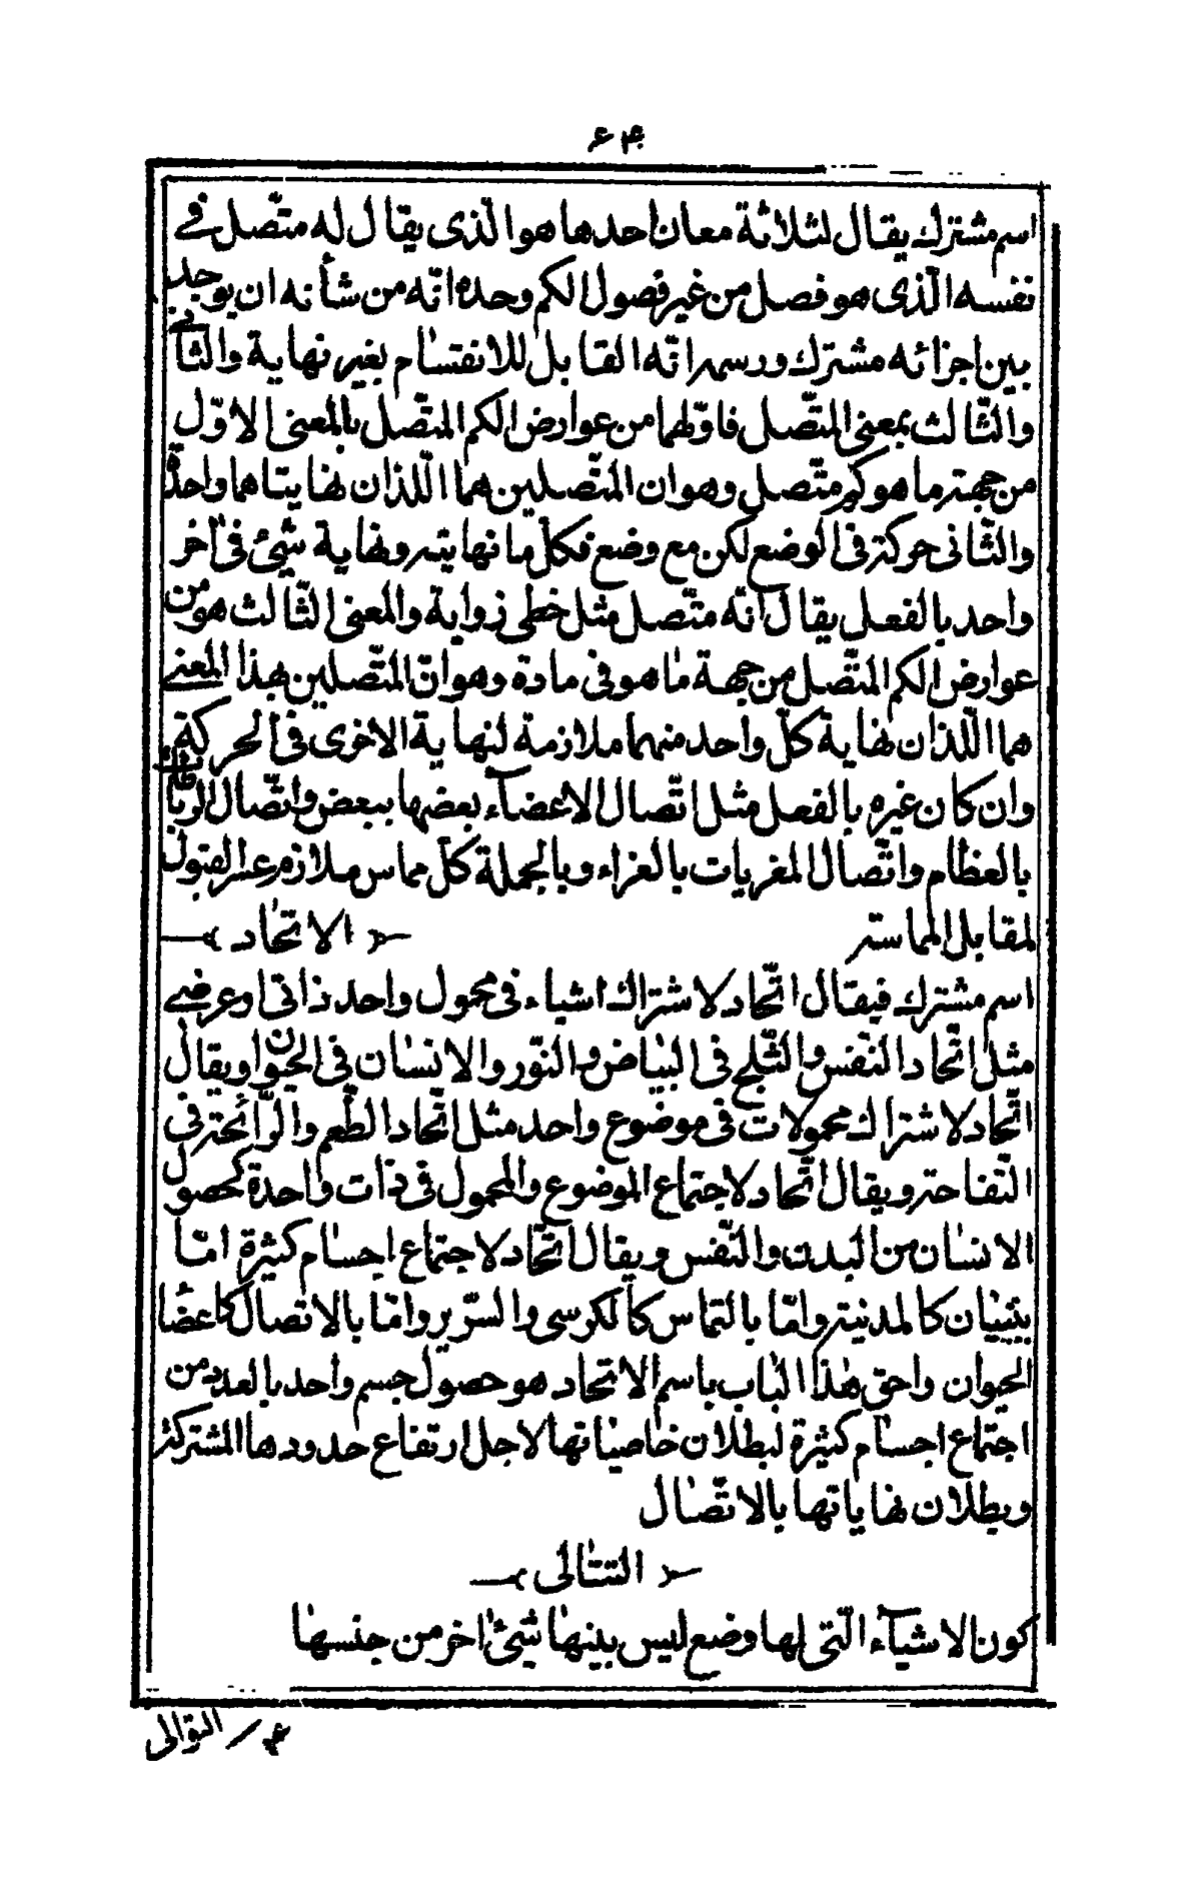 ۶۴
اسم مشترك يقال لثلاثة معان احدها هو الّذى يقال له متّصل فى
نفسه الّذى هو فصل من غير فصول الكم وحده انّه من شأنه ان يوجد
بين اجزائه مشترك ورسمه انّه القابل للانقسام بغير نهاية والثانى
والثّالث بمعنى المتّصل فاوّلهما من عوارض الكم المتّصل بالمعنى الاوّل
من جهته ما هو كم متّصل وهو ان المتّصلين هما الّلذان نهايتاهما واحدة
والثّانى حركته فى الوضع لكن مع وضع فكلّ ما نهايته ونهاية شئ فى اٰخر
واحد بالفعل يقال انّه متّصل مثل خطى زواية والمعنى الثّالث هو من
عوارض الكم المتّصل من جهة ما هو فى مادة وهو انّ المتّصلين بهذا المعنى
هما الّلذان نهاية كلّ واحد منهما ملازمة لنهاية الاخرى فى الحركة
وان كان غيره بالفصل مثل اتّصال الاعضآء بعضها ببعض واتّصال الرباطات
بالعظام واتّصال المغريات بالغراء وبالجملة كلّ مماس ملازم عسر القبول
لمقابل المماسته
الاتحاد
اسم مشترك فيقال اتّحاد لاشتراك اشياء فى محمول واحد ذاتى او عرضى
مثل اتّحاد النّفس والثّلج فى البياض والنّور والانسان فى الحيوان ويقال
اتّحاد لاشتراك محمولات فى موضوع واحد مثل اتّحاد الطّعم والرّائحته فى
التّفاحته ويقال اتّحاد لاجتماع الموضوع والمحمول فى ذات واحدة كحصول
الانسان من البدن والنّفس ويقال اتّحاد لاجتماع اجسام كثيرة امّا
بتبيان كالمدنيته وامّا بالتماس كالكرسى والسّرير وامّا بالاتصال كاعضا
الحيوان واحق هذا الباب باسم الاتحاد هو حصول جسم واحد بالعدد من
اجتماع اجسام كثيرة لبطلان خاصياتها لاجل ارتفاع حدودها المشتركة
وبطلان نهاياتها بالاتّصال
التتالى
كون الاشيآء الّتى لها وضع ليس بينها شئ اخر من جنسها
التوالى